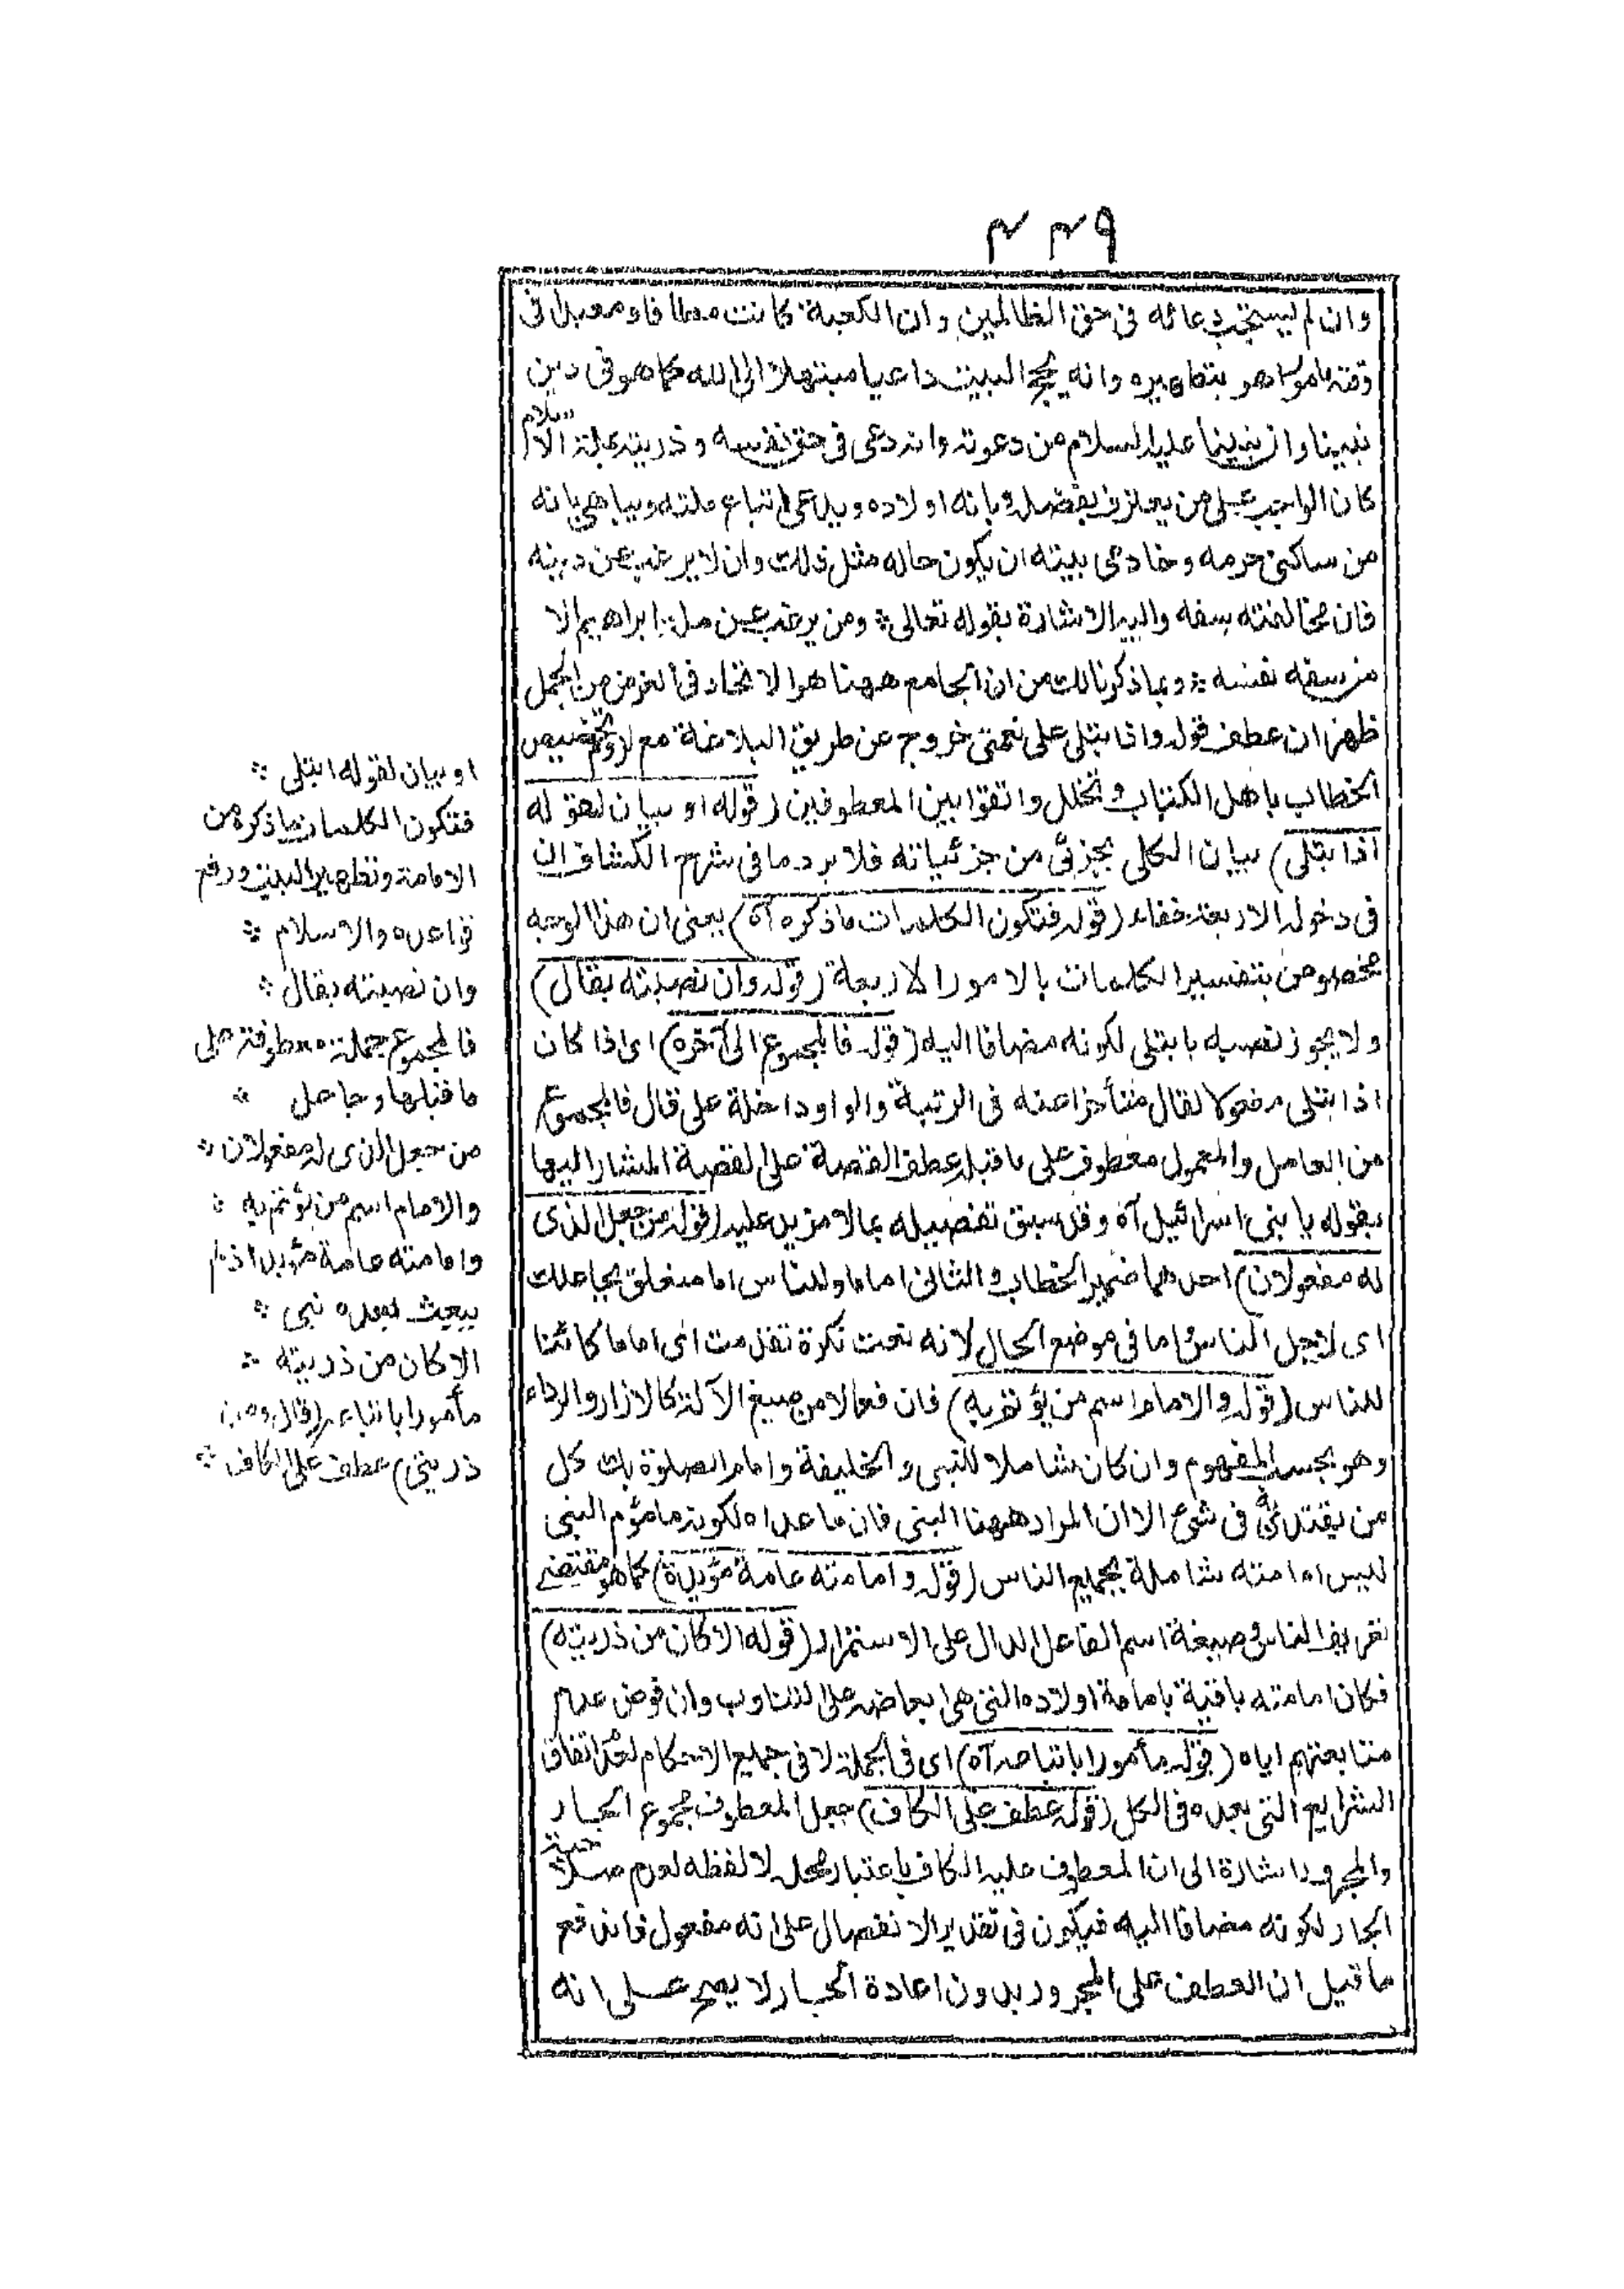 ٤٤٩
وان لم يستجب دعائه فى حق الظالمين وان الكعبة كانت مطافا ومعبدا فى
وقته مامورا هو بتطهيره وانه يحج البيت داعيا مبتهلا الى الله كما هو فى دين
نبينا وان نبينا عليه السلام من دعوته وانه دعى فى حق نفسه وذريته بملة الاسلام
كان الواجب على من يعترف بفضله وبانه اولاده ويدعى اتباع ملته ويباهى بانه
من ساكنى حرمه وخادمى بيته ان يكون حاله مثل ذلك وان لا يرغب عن دينه
فان مخالفته سفه واليه الاشارة بقوله تعالى ومن يرغب عن ملة ابراهيم الا
من سفه نفسه وبما ذكرنا لك من ان الجامع ههنا هو الاتحاد فى الغرض من الجمل
ظهر ان عطف قوله واذ ابتلى على نعمتى خروج عن طريق البلاغة مع لزوم تخصيص
الخطاب باهل الكتاب وتخلل واتقوا بين المعطوفين (قوله او بيان لقوله
اذ ابتلى) بيان الكلى بجزئى من جزئياته فلا يرد ما فى شرح الكشاف ان
فى دخول الاربعة خفاء (قوله فتكون الكلمات ما ذكره آه) يعنى ان هذا الوجه
مخصوص بتفسير الكلمات بالامور الاربعة (قوله وان نصبته بقال)
ولا يجوز نصبه بابتلى لكونه مضافا اليه (قوله فالمجموع الى آخره) اى اذا كان
اذ ابتلى مفعولا لقال متأخرا عنه فى الرتبة والواو داخلة على قال فالمجموع
من العامل والمعمول معطوف على ما قبله عطف القصة على القصة المشار اليها
بقوله يا بنى اسرائيل آه وقد سبق تفصيله بما لا مزيد عليه (قوله من جعل الذى
له مفعولان) احدهما ضمير الخطاب والثانى اماما وللناس اما متعلق بجاعلك
اى لاجل الناس واما فى موضع الحال لانه نعت نكرة تقدمت اى اماما كائنا
للناس (قوله والامام اسم من يؤتم به) فان فعالا من صيغ الآلة كالازار والرداء
وهو بحسب المفهوم وان كان شاملا للنبى والخليفة وامام الصلوة بل كل
من يقتدى به فى شئ الا ان المراد ههنا النبى فان ما عداه لكونه ماموم النبى
ليس امامته شاملة بجميع الناس (قوله وامامته عامة مؤبدة) كما هو مقتضى
تعريف الناس وصيغة اسم الفاعل الدال على الاستمرار (قوله الا كان من ذريته)
فكان امامته باقية بامامة اولاده التى هى ابعاضه على التناوب وان فرض عدم
متابعتهم اياه (قوله مأمورا باتباعه آه) اى فى الجملة لا فى جميع الاحكام لعدم اتفاق
الشرايع التى بعده فى الكل (قوله عطف على الكاف) جعل المعطوف مجموع الجار
والمجرور اشارة الى ان المعطوف عليه الكاف باعتبار محله لا لفظه لعدم صلاحية
الجار لكونه مضافا اليه فيكون فى تقدير الانفصال على انه مفعول فاندفع
ما قيل ان العطف على المجرور بدون اعادة الجار لا يصح على انه
او بيان لقوله ابتلى
فتكون الكلمات ما ذكره من
الامامة وتطهير البيت ورفع
قواعده والاسلام
وان نصبته بقال
فالمجموع جملة معطوفة على
ما قبلها وجاعل
من جعل الذى له مفعولان
والامام اسم من يؤتم به
وامامته عامة مؤبدة اذ لم
يبعث بعده نبى
الا كان من ذريته
مأمورا باتباعه (قال ومن
ذريتى) عطف على الكاف